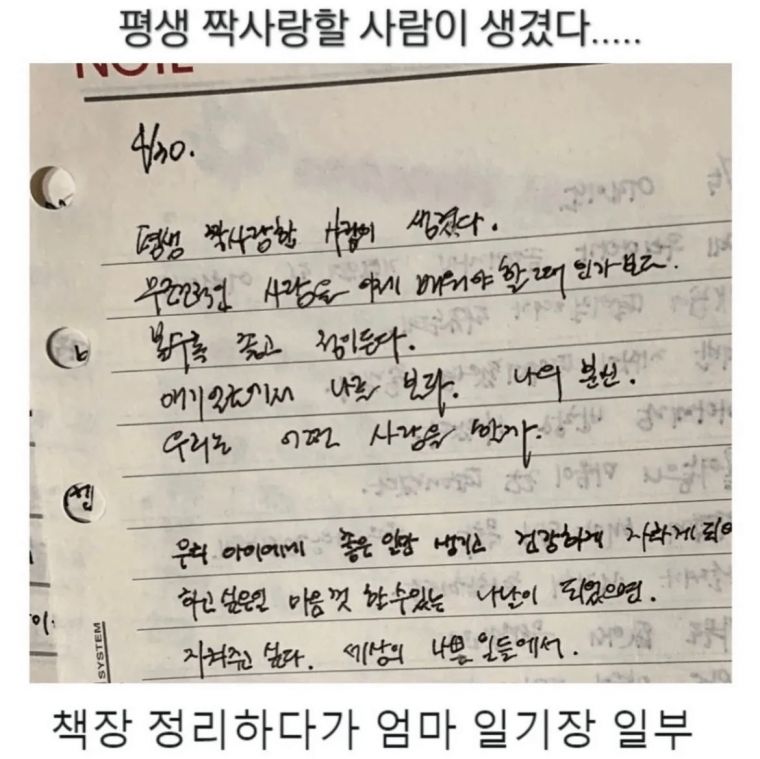 평생 짝사랑할 사람이 생겼다.....
NOTE
4/30.
평생 짝사랑할 사람이 생겼다.
무조건적인 사랑을 이제 배워야 할 때 인가보다.
볼수록 좋고 정이든다.
애기 눈에서 나를 보라. 나의 분신.
우리는 어떤 사랑을 할까.
우리 아이에게 좋은 일만 생기고 건강하게 자라게 되어
하고 싶은일 마음껏 할수있는 나날이 되었으면.
지켜주고 싶다. 세상의 나쁜 일들에서.
SYSTEM
책장 정리하다가 엄마 일기장 일부